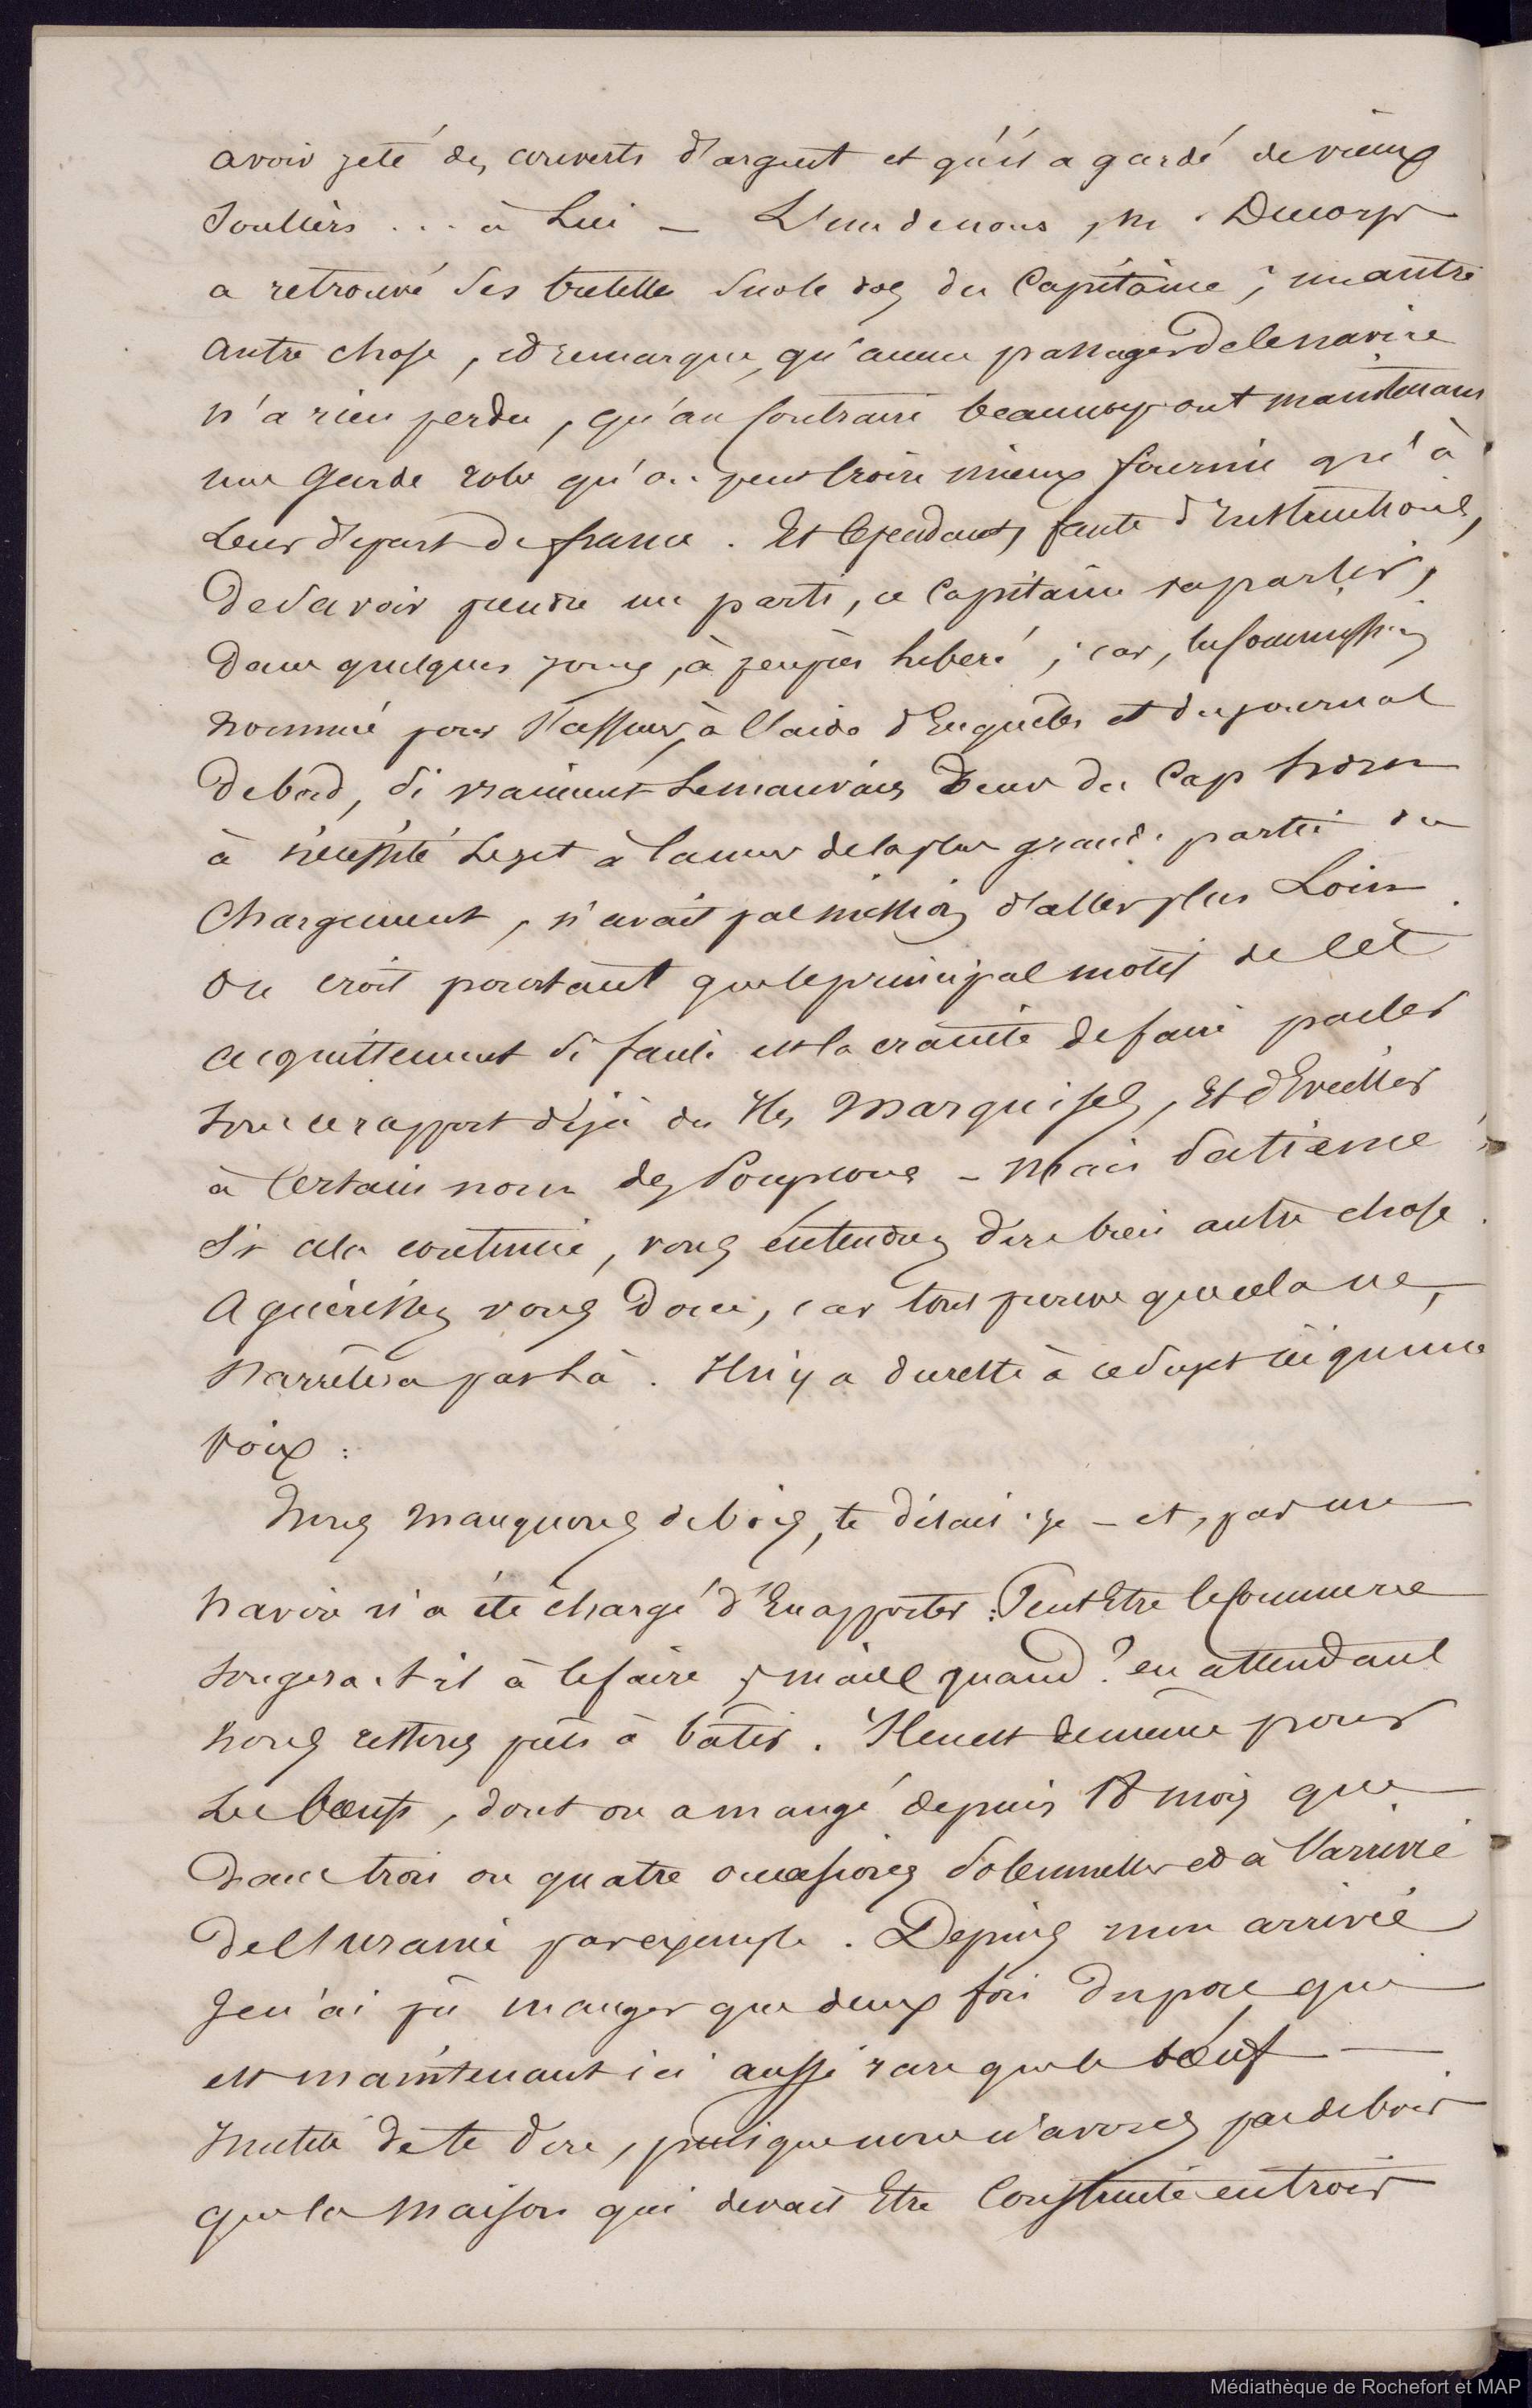 avoir jeté des couverts d'argent et qu'il a gardé de vieux
soulliers ... à Lui — L'un de nous, M. Ducorps
a retrouvé ses bretelles sur le dos du Capitaine, un autre
autre chose, et remarque, qu'aucun passager de le navire
n'a rien perdu, qu'au Contraire beaucoup ont maintenant
une Garde robe qu'on peut croire mieux fournie qu'à
Leur départ de france. Et Cependant, faute d'Instructions,
De Savoir prendre un parti, ce Capitaine va partir,
Dans quelques jours, à peu près libéré, car, la Commission
nommée pour s'assurer, à l'aide d'Enquêtes et du journal
De bord, si vraiment Le mauvais du Cap horn
à nécessité Le jet à la mer de la plus grande partie du
Chargement, n'avait pas mission d'aller plus Loin.
On croit pourtant que le principal motif de Cet
acquittement si facile est la crainte de faire parler
sous ce rapport déjà des Iles Marquises, Et d'Eveiller
à Certains noms des Soupçons — Mais patience
Si cela continue, vous entendrez dire bien autre chose.
Aguérissez vous donc, car tout prouve que cela ne
s'arrêtera pas là. Il n'y a du reste à ce sujet ici qu'une
voix :
Nous manquons de bois, te disais-je — et, pas un
navire n'a été chargé d'En apporter. Peut Etre le Commerce
songera-t-il à le faire, mais quand ? en attendant
nous restons prêts à bâtir. Il en est de même pour
Le boeuf, dont on a mangé depuis 18 mois que
Dans trois ou quatre occasions Solennelles et à l'arrivée
De l'Uranie par exemple. Depuis mon arrivée
Je n'ai pû manger que deux fois du porc qui
est maintenant ici aussi rare que le boeuf —
Inutile de te dire, puisque nous n'avons pas de bois
que la Maison qui devait Etre Construite en trois